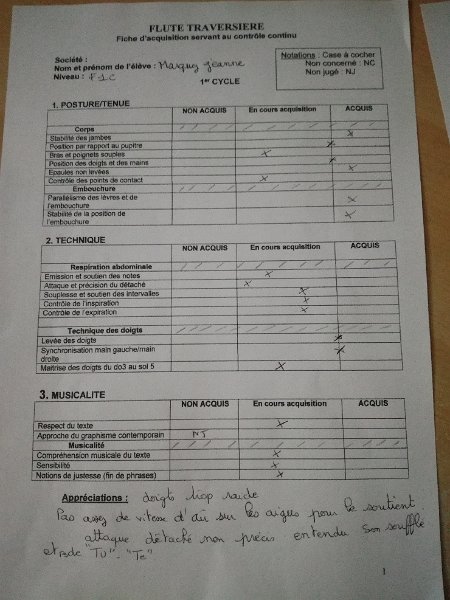 FLUTE TRAVERSIERE
Fiche d'acquisition servant au contrôle continu
Société :
Nom et prénom de l'élève : Marquez Jeanne
Niveau : F1C
1er CYCLE
Notations : Case à cocher
Non concerné : NC
Non jugé : NJ
1. POSTURE/TENUE
NON ACQUIS En cours acquisition ACQUIS
Corps
Stabilité des jambes x
Position par rapport au pupitre x
Bras et poignets souples x
Position des doigts et des mains x
Epaules non levées x
Contrôle des points de contact x
Embouchure
Parallélisme des lèvres et de
l'embouchure x
Stabilité de la position de
l'embouchure x
2. TECHNIQUE
NON ACQUIS En cours acquisition ACQUIS
Respiration abdominale
Emission et soutien des notes x
Attaque et précision du détaché x
Souplesse et soutien des intervalles x
Contrôle de l'inspiration x
Contrôle de l'expiration x
Technique des doigts
Levée des doigts x
Synchronisation main gauche/main
droite x
Maitrise des doigts du do3 au sol 5 x
3. MUSICALITE
NON ACQUIS En cours acquisition ACQUIS
Respect du texte x
Approche du graphisme contemporain NJ
Musicalité
Compréhension musicale du texte x
Sensibilité x
Notions de justesse (fin de phrases) x
Appréciations : doigts trop raide
Pas assez de vitesse d'air sur les aigues pour le soutient
attaque détaché non précis entendu son souffle
et de "Tu" - "Te"
1